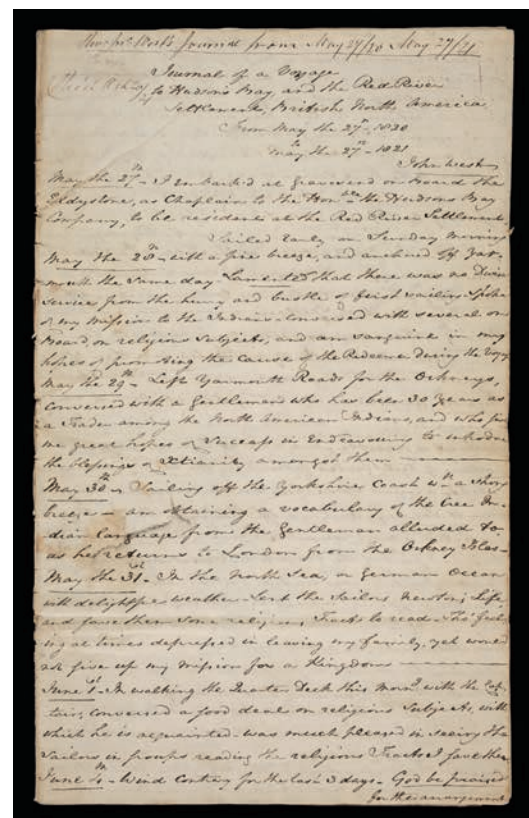 Journal from May 27/20 May 27/21
Journal of a Voyage
to Hudson's Bay, and the Red River
Settlement, British North America
From May the 27th - 1820
to May the 27th - 1821
John West
May the 27th - I embark'd at Gravesend on board the
Eddystone, as Chaplain to the Honble the Hudsons Bay
Company, to be resident at the Red River Settlement.
Sailed early on Sunday morning
May the 28th - with a fine breeze, and anchored off Yar-
mouth the same day - Lamented that there was no divine
service from the hurry and bustle of first sailing. Spoke
of my mission to the Indians - conversed with several on
board, on religious subjects, and am sanguine in my
hopes of promoting the cause of the Redeemer during the Voy
May the 29th - Left Yarmouth Roads for the Orkneys,
conversed with a Gentleman who has been 30 years as
a Trader among the North American Indians, and who
me great hopes of success in endeavouring to
the blessings of Xtianity amongst them
May 30th - Sailing off the Yorkshire Coast wth a
breeze - am obtaining a vocabulary of the Cree In-
dian Language from the Gentleman alluded to,
as he returns to London from the Orkney Isles -
May the 31st - In the North Sea, or German Ocean
with weather - Lent the Sailors Newton's Life,
and gave them some religious Tracts to read. Tho' feel-
ing at times depressed in leaving my family, yet would
not give up my mission for a Kingdom
June 1st - In walking the Quarter Deck this Morng with the Cap-
tain, conversed a good deal on religious subjects, with
which he is acquainted - was much pleased in seeing the
Sailors in groups reading the religious Tracts I gave them
June 4th - Wind contrary for the last 3 days - God be praised
for the arrangement